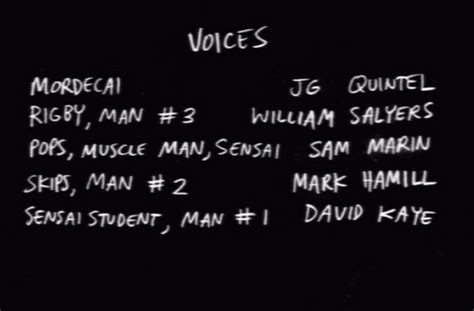 VOICES
MORDECAI JG QUINTEL
RIGBY, MAN #3 WILLIAM SALYERS
POPS, MUSCLE MAN, SENSAI SAM MARIN
SKIPS, MAN #2 MARK HAMILL
SENSAI STUDENT, MAN #1 DAVID KAYE